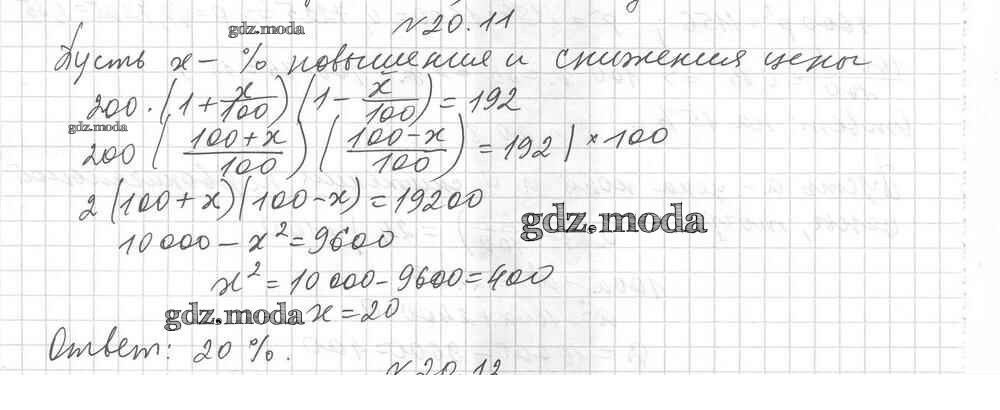 gdz.moda
№20.11
Пусть x - % повышения и снижения цены
200·(1+x/100)(1-x/100)=192
gdz.moda
200((100+x)/100)((100-x)/100)=192|×100
2(100+x)(100-x)=19200
gdz.moda
10000-x²=9600
x²=10000-9600=400
gdz.moda
x=20
Ответ: 20%.
№20.12